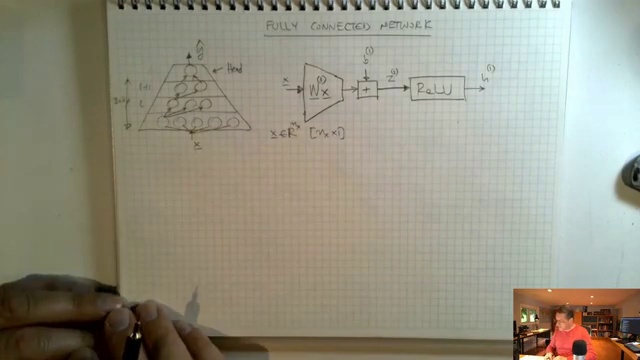 FULLY CONNECTED NETWORK
ŷ
Head
L+1
L
x
x
W x
(1)
+
b
(1)
z
(1)
ReLU
h
(1)
x ∈ R
nx
[nx × 1]